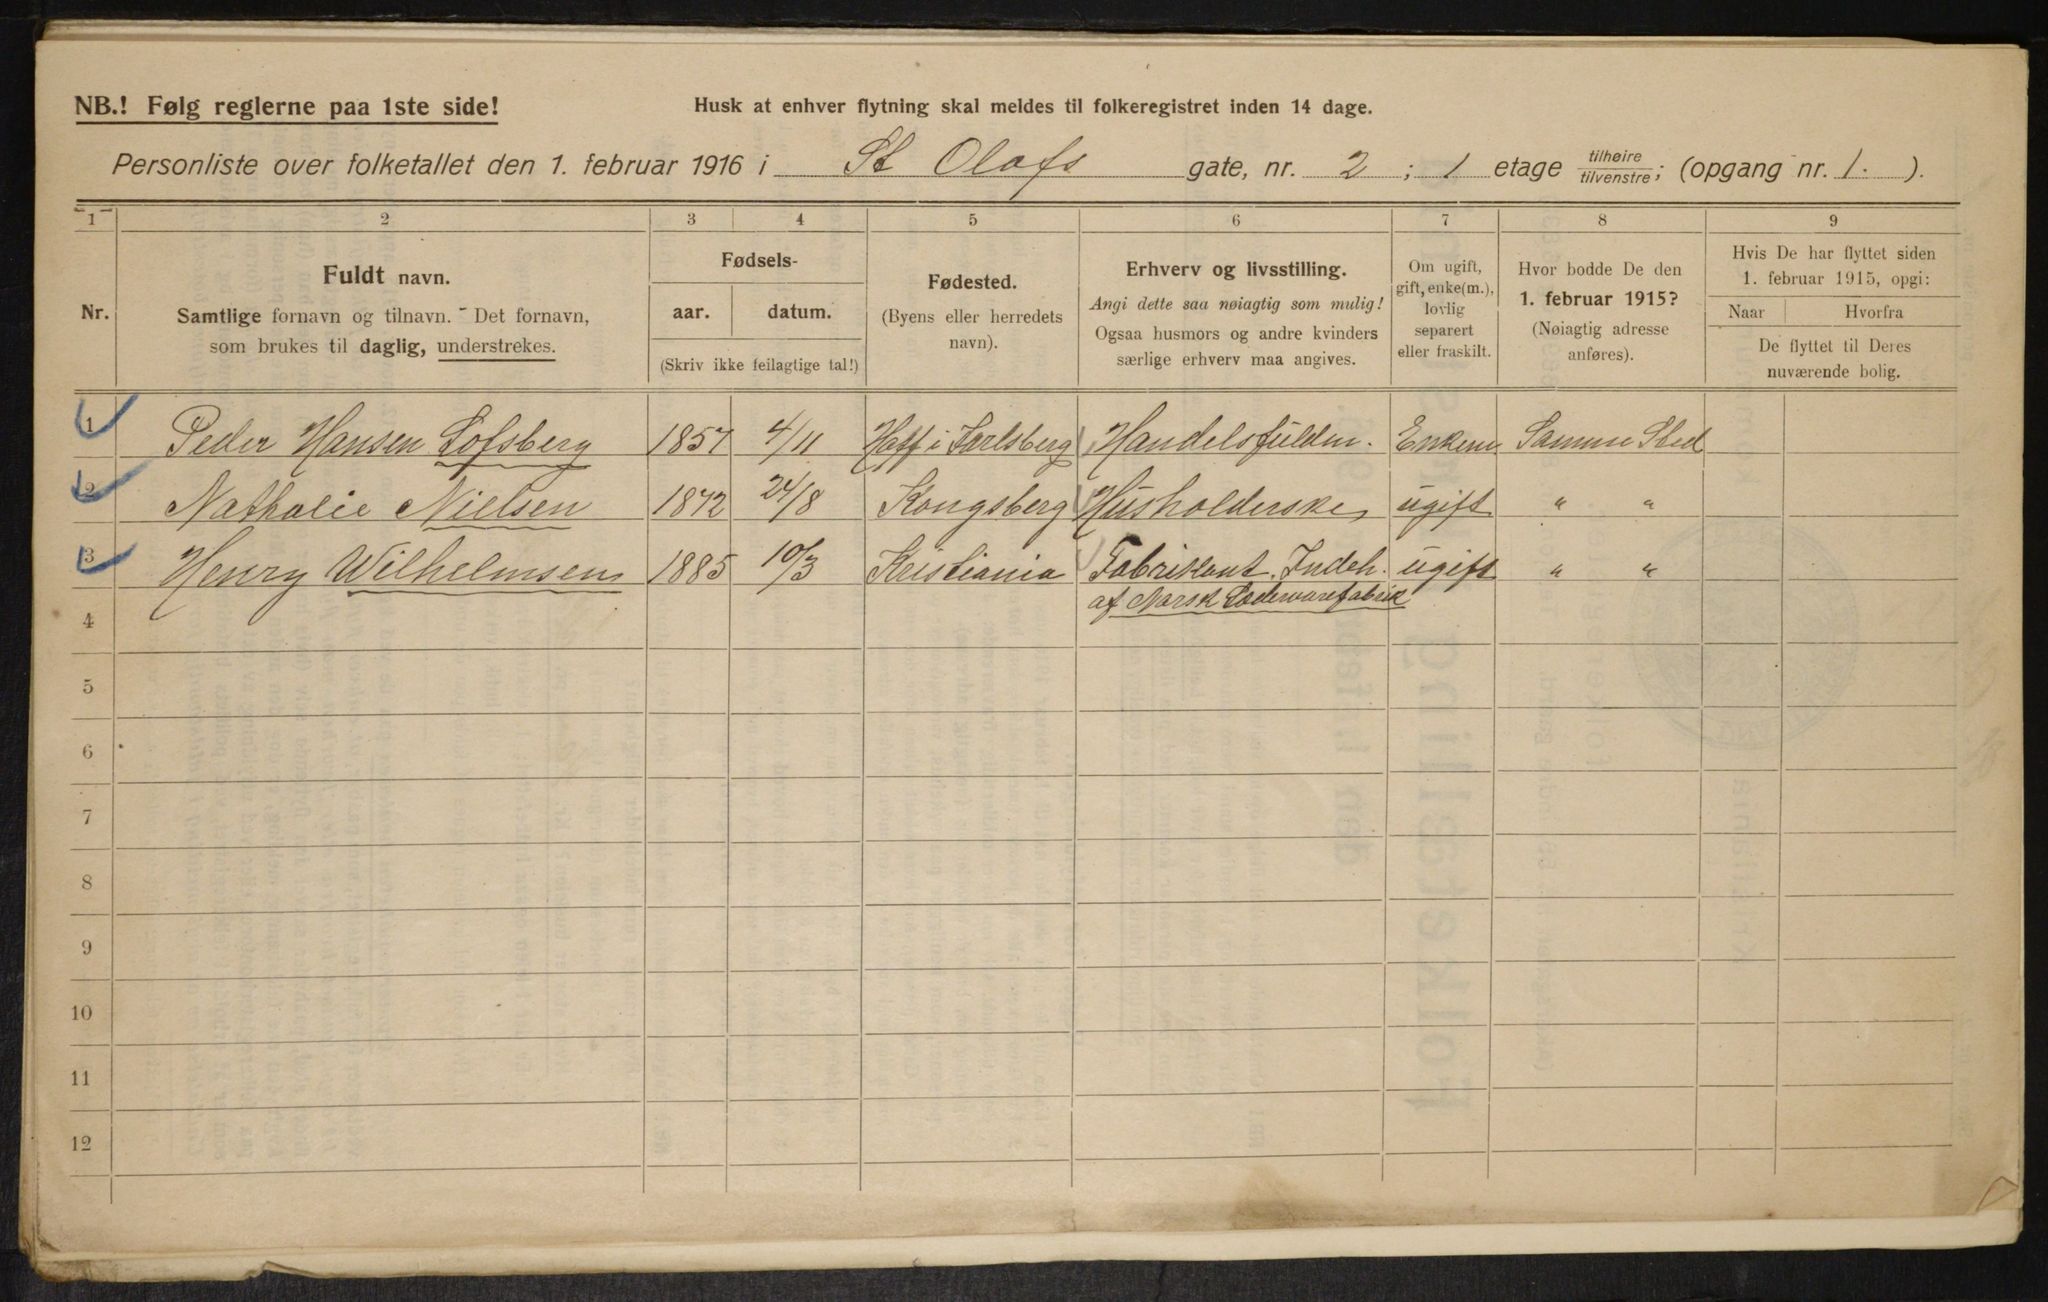 NB.! Følg reglerne paa 1ste side!
Husk at enhver flytning skal meldes til folkeregistret inden 14 dage.
Personliste over folketallet den 1. februar 1916 i St Olafs gate, nr. 2 ; 1 etage tilhøire/tilvenstre; (opgang nr. 1. ).
1 2 3 4 5 6 7 8 9
Nr.
Fuldt navn.
Samtlige fornavn og tilnavn. - Det fornavn,
som brukes til daglig, understrekes.
Fødsels-
aar. datum.
(Skriv ikke feilagtige tal!)
Fødested.
(Byens eller herredets
navn).
Erhverv og livsstilling.
Angi dette saa nøiagtig som mulig!
Ogsaa husmors og andre kvinders
særlige erhverv maa angives.
Om ugift,
gift, enke(m.),
lovlig
separert
eller fraskilt.
Hvor bodde De den
1. februar 1915?
(Nøiagtig adresse
anføres).
Hvis De har flyttet siden
1. februar 1915, opgi:
Naar Hvorfra
De flyttet til Deres
nuværende bolig.
1 Peder Hansen Lofsberg 1857 4/11 Hoff i Jarlsberg Handelsfuldm. Enkem Samme Sted
2 Nathalie Nielsen 1872 24/8 Kongsberg Husholderske ugift " "
3 Henry Wilhelmsen 1885 10/3 Kristiania Fabrikant. Indeh. ugift " "
af Norsk Lædervarefabrik
4
5
6
7
8
9
10
11
12